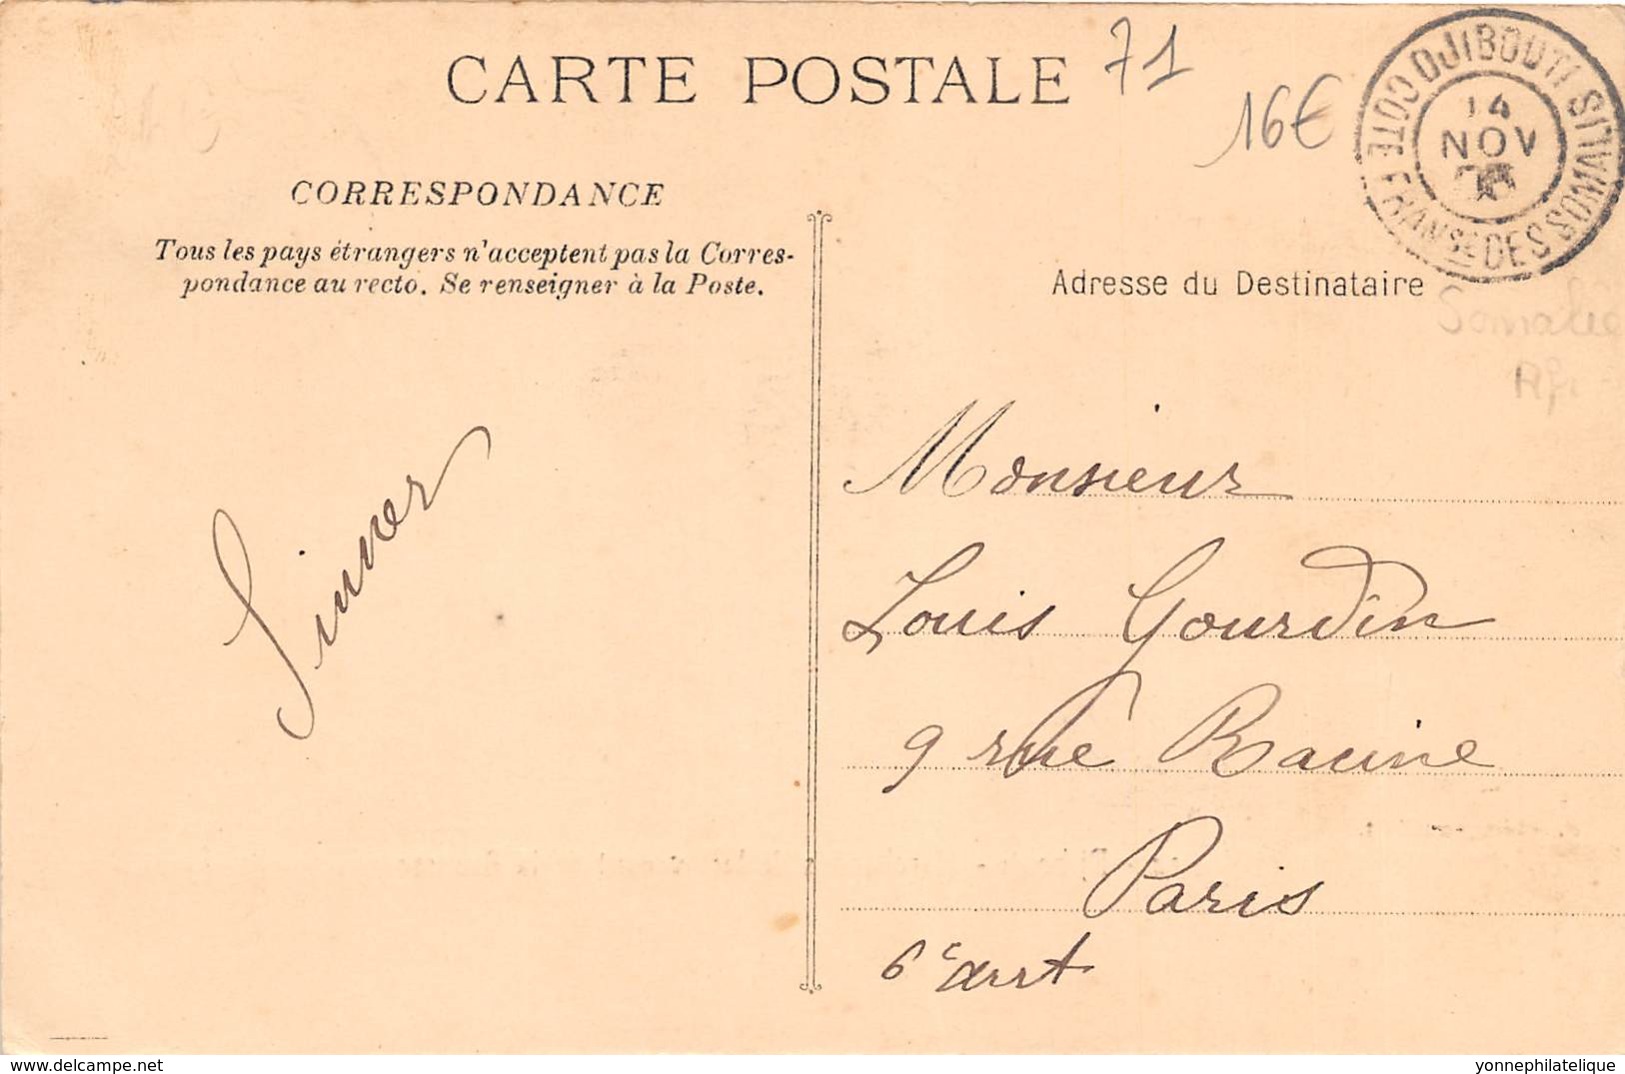 CARTE POSTALE
71
16€
DJIBOUTI
COTE FRANSE DES SOMALIS
14
NOV
CORRESPONDANCE
Tous les pays étrangers n'acceptent pas la Corres-
pondance au recto. Se renseigner à la Poste.
Adresse du Destinataire
Somalie
Monsieur
Louis Gourdin
9 rue Racine
Paris
6e arrt
delcampe.net
yonnephilatelique